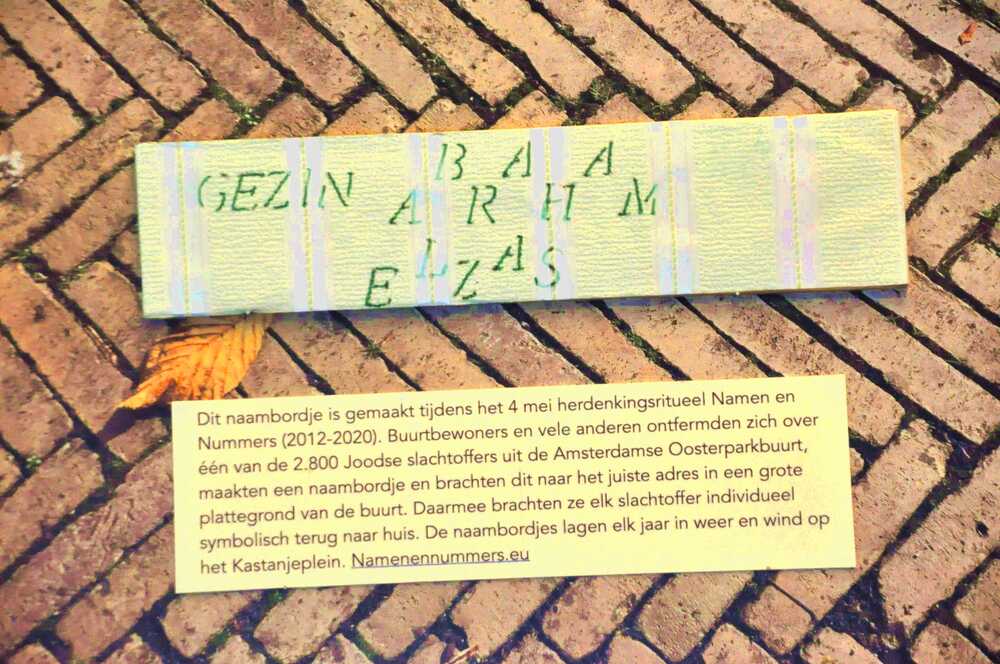 GEZIN ABRAHAM
ELZAS
Dit naambordje is gemaakt tijdens het 4 mei herdenkingsritueel Namen en
Nummers (2012-2020). Buurtbewoners en vele anderen ontfermden zich over
één van de 2.800 Joodse slachtoffers uit de Amsterdamse Oosterparkbuurt,
maakten een naambordje en brachten dit naar het juiste adres in een grote
plattegrond van de buurt. Daarmee brachten ze elk slachtoffer individueel
symbolisch terug naar huis. De naambordjes lagen elk jaar in weer en wind op
het Kastanjeplein. Namenennummers.eu